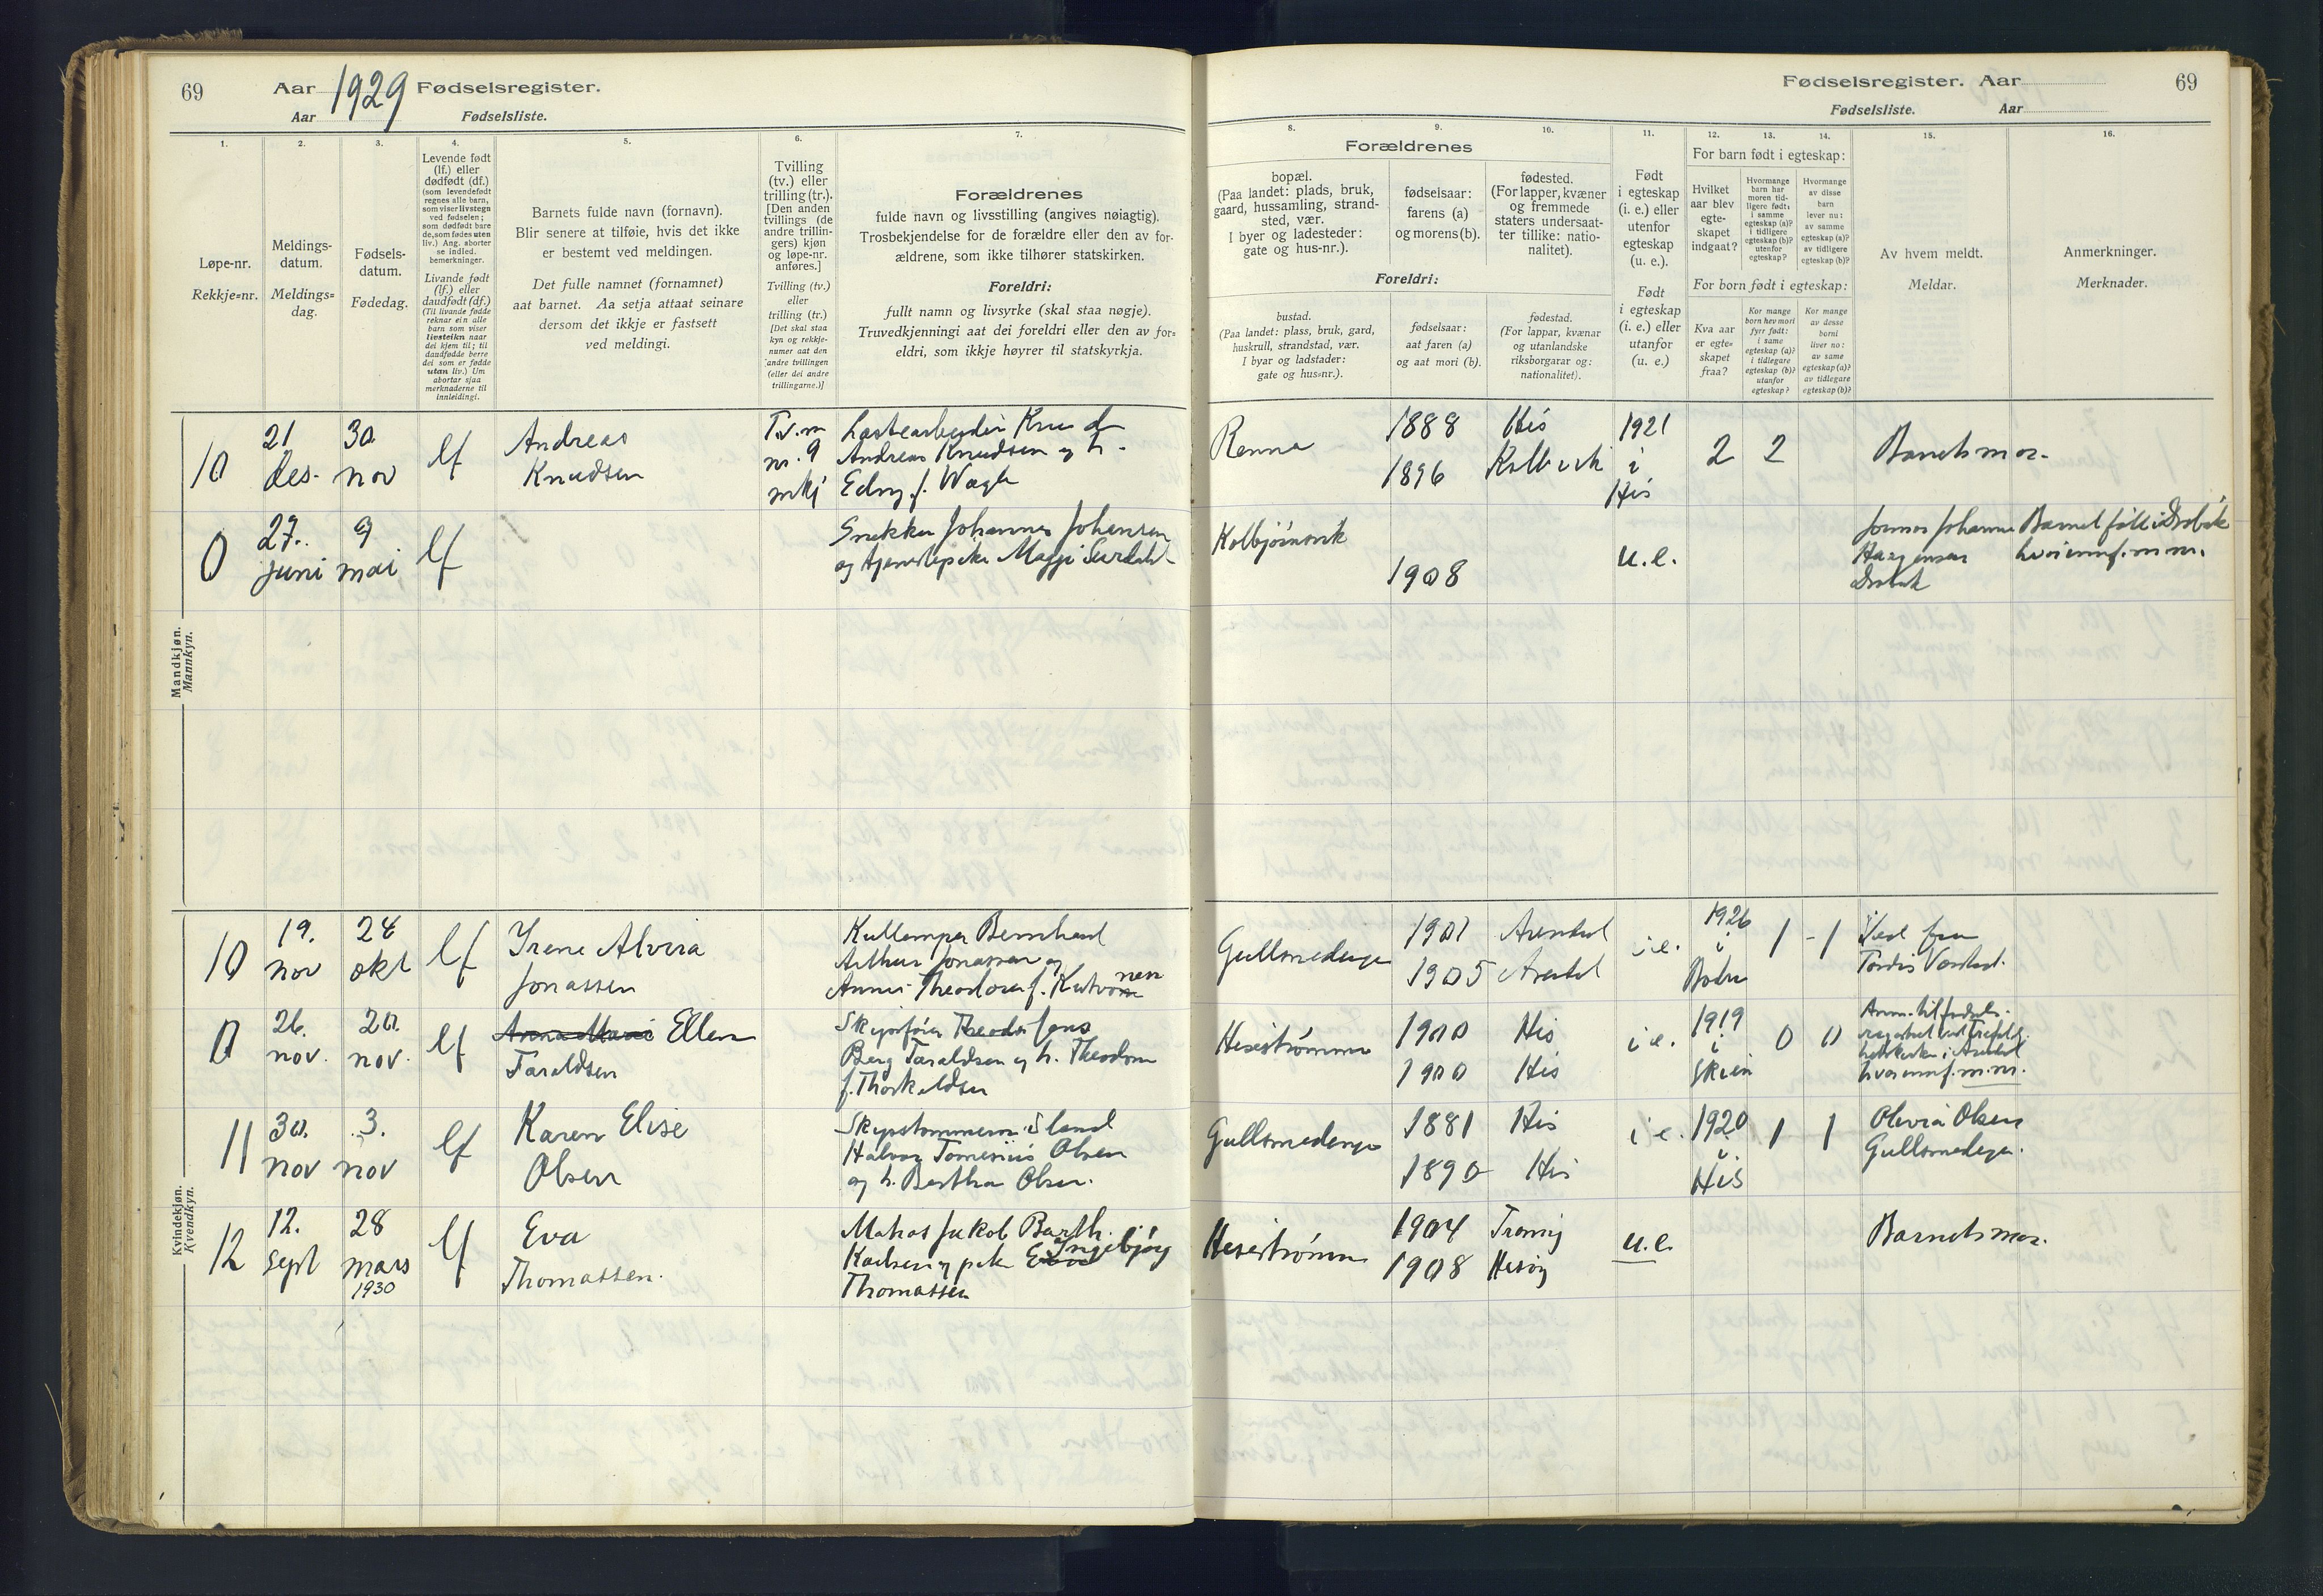 69
Aar 1929 Fødselsregister.
Aar Fødselsliste.
1.
2.
3.
4.
5.
6.
7.
Løpe-nr.
Rekkje-nr.
Meldings-
datum.
Meldings-
dag.
Fødsels-
datum.
Fødedag.
Levende født
(lf.) eller
dødfødt (df.)
(som levendefødt
regnes alle barn,
som viser livstegn
ved fødselen;
som dødfødt bare
de, som fødes uten
liv.) Ang. aborter
se indled.
bemerkninger.
Livande født
(lf.) eller
daudfødt (df.)
(Til livande fødde
reknar ein alle
barn som viser
livsteikn naar
dei kjem til; til
daudfødde berre
dei som er fødde
utan liv.) Um
abortar sjaa
merknaderne til
innleidingi.
Barnets fulde navn (fornavn).
Blir senere at tilføie, hvis det ikke
er bestemt ved meldingen.
Det fulle namnet (fornamnet)
aat barnet. Aa setja attaat seinare
dersom det ikkje er fastsett
ved meldingi.
Tvilling
(tv.) eller
trilling (tr.).
[Den anden
tvillings (de
andre trillin-
gers) kjøn
og løpe-nr.
anføres.]
Tvilling (tv.)
eller
trilling (tr.)
[Det skal staa
kyn og rekkje-
numer aat den
andre tvillingen
(eller dei andre
trillingarne.)]
Forældrenes
fulde navn og livsstilling (angives nøiagtig).
Trosbekjendelse for de forældre eller den av for-
ældrene, som ikke tilhører statskirken.
Foreldri:
fullt namn og livsyrke (skal staa nøgje).
Truvedkjenningi aat dei foreldri eller den av for-
eldri, som ikkje høyrer til statskyrkja.
Mandkjøn.
Mannkyn.
10
21
des.
30
nov
lf
Andreas
Knudsen
Tv. m
nr. 9
mkj
Lastearbeider Knud
Andreas Knudsen og h.
Edny f. Wagle
0
27.
juni
9
mai
lf
Snekker Johannes Johansen
og tjenestepike Maggi
Kvindekjøn.
Kvendkyn.
10
19.
nov
24
okt
lf
Irene Alvira
Jonassen
Kullemper Bernhard
Arthur Jonassen og
Annie Theodora f.
0
26.
nov.
20.
nov.
lf
Anna Marie Ellen
Taraldsen
Skipsfører Theodor Jens
Berg Taraldsen og h. Theodora
f. Thorkildsen
11
30.
nov
3.
nov
lf
Karen Elise
Olsen
Skipstømmermand
Halvor Tomesius Olsen
og h. Bertha Olsen.
12
12.
sept
28
mars
1930
lf
Eva
Thomassen.
Matros Jakob Barth.
Karlsen og pike Ingebjørg
Thomassen
Fødselsregister. Aar
69
Fødselsliste. Aar
8.
9.
10.
11.
12.
13.
14.
15.
16.
Forældrenes
bopæl.
(Paa landet: plads, bruk,
gaard, hussamling, strand-
sted, vær.
I byer og ladesteder:
gate og hus-nr.).
fødselsaar:
farens (a)
og morens (b).
fødested.
(For lapper, kvæner
og fremmede
staters undersaat-
ter tillike: natio-
nalitet).
Foreldri:
bustad.
(Paa landet: plass, bruk, gard,
huskrull, strandstad, vær.
I byar og ladstader:
gate og hus-nr.).
fødselsaar:
aat faren (a)
og aat mori (b).
fødestad.
(For lappar, kvænar
og utanlandske
riksborgarar og:
nationalitet).
Født
i egteskap
(i. e.) eller
utenfor
egteskap
(u. e.).
Født
i egteskap
(i. e.) eller
utanfor
(u. e.)
For barn født i egteskap:
Hvilket
aar blev
egte-
skapet
indgaat?
Hvormange
barn har
moren tid-
ligere født:
i samme
egteskap (a)?
i tidligere
egteskap (b)?
utenfor
egteskap?
Hvormange
av disse
barn
lever nu:
av samme
egteskap (a)?
av tidligere
egteskap (b)?
For born født i egteskap:
Kva aar
er egte-
skapet
fraa?
Kor mange
born hev mori
fyrr født:
i same
egteskap (a)?
i tidlegare
egteskap (b)?
utanfor
egteskap?
Kor mange
av desse
borni
liver no:
av same
egteskap (a)?
av tidlegare
egteskap (b)?
Av hvem meldt.
Meldar.
Anmerkninger.
Merknader.
Renna
1888
1896
His
1921
i
His
2
2
Barnets mor.
Kolbjørnsvik
1908
u. e.
Johanne
Drøbak
Barnet født i Drøbak
hvor innf. m. nr.
Gullsmedengen
1901
1905
Arendal
Arendal
i e.
1926
i
1
1
fra
Tordis
Hisestrømmen
1900
1900
His
His
i e.
1919
i
Skien
0
0
Anm. til fødsels-
registret ved Trefoldig-
hetskirken i Arendal
hvor innf. m. nr.
Gullsmedengen
1881
1890
His
His
i e.
1920
i
His
1
1
Olevia Olsen
Gullsmedengen.
Hisestrømm
1904
1908
Tromøy
Hisøy
u. e.
Barnets mor.